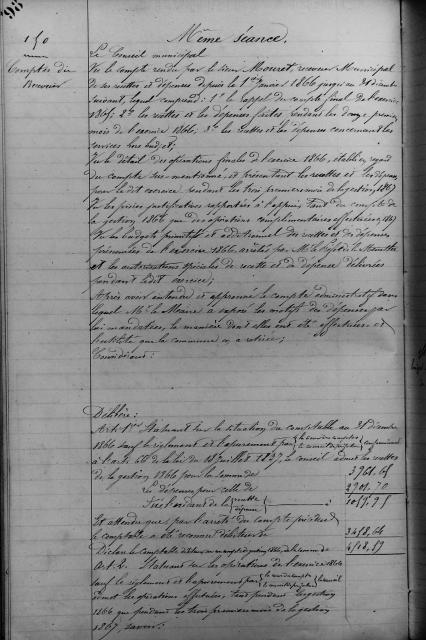 98
150
Même séance.
Comptes du
Receveur
Le Conseil municipal
Vu le compte rendu par le sieur receveur Municipal
de ses recettes et dépenses depuis le 1er janvier 1866 jusqu'au 31 décembre
suivant, lequel comprend: 1° le rappel du compte final de l'exercice
1865; 2° les recettes et les dépenses faites pendant les douze premiers
mois de l'exercice 1866; 3° les recettes et les dépenses concernant les
services hors budget;
Vu le détail des opérations finales de l'exercice 1866, établi en regard
du compte sus-mentionné, et présentant les recettes et les dépenses
pour le dit exercice pendant les trois premiers mois de la gestion 1867
Vu les pièces justificatives rapportées à l'appui, tant du compte de
la gestion 1866 que des opérations complémentaires effectuées en 1867
Vu les budgets primitif et additionnel des recettes et des dépenses
présumées de l'exercice 1866 arrêtés par Mr le Préfet de la
et les autorisations spéciales de recette et de dépense délivrées
pendant ledit exercice;
Après avoir entendu et approuvé le compte administratif dans
lequel Mr le Maire a exposé les motifs des dépenses par
lui mandatées, la manière dont elles ont été effectuées et
l'utilité que la commune en a retirée;
Considérant:
Délibère:
Art. 1er Statuant sur la situation du comptable au 31 décembre
1866 sauf le règlement et l'apurement par conformément
à l'art. 66 de la loi du 18 juillet 1837, le conseil admet les recettes
de la gestion 1866 pour la somme de 3961.65
Les dépenses pour celle de 2901.70
Fixe l'excédant de la recette
dépense
Et attendu que, par l'arrêté du compte précédent
le comptable a été reconnu débiteur de 3458,66
Déclare le comptable débiteur au 31 décembre 1866, de la somme de
Art. 2. Statuant sur les opérations de l'exercice 1866
sauf le règlement et l'apurement par le conseil
admet les opérations effectuées, tant pendant la gestion
1866 que pendant les trois premiers mois de la gestion
1867, savoir: